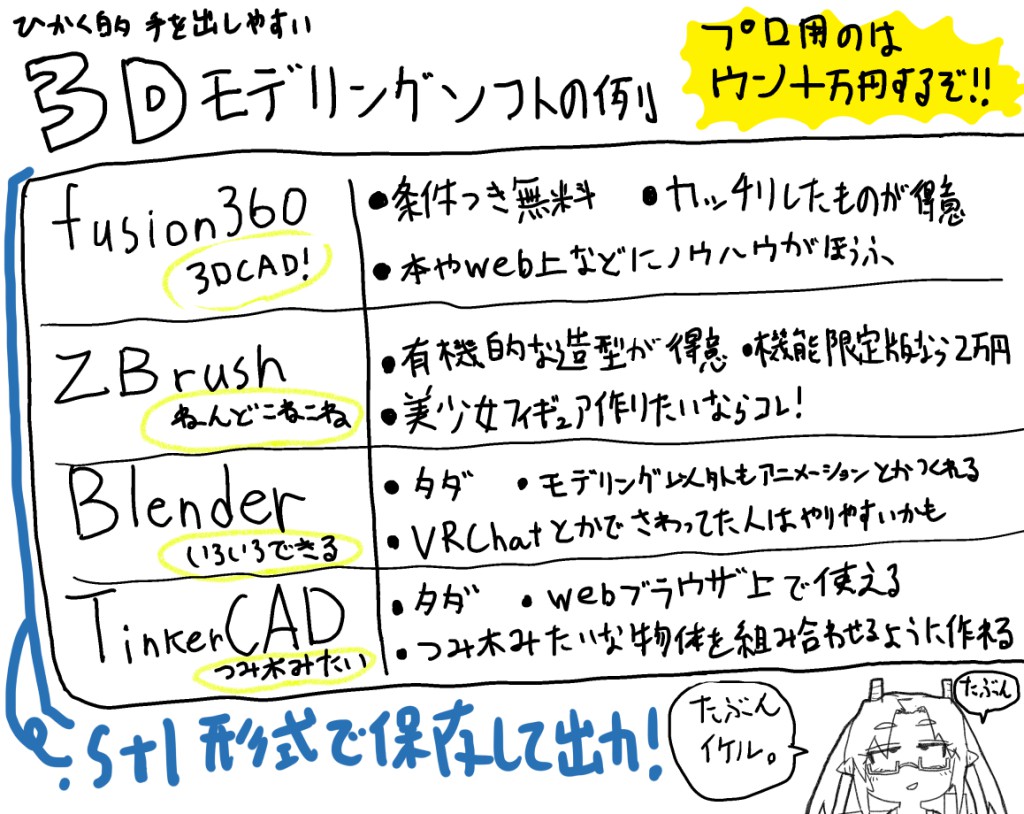 ひかく的 手を出しやすい
3Dモデリングソフトの例
プロ用のは
ウン十万円するぞ!!
fusion360
3DCAD!
●条件つき無料 ●カッチリしたものが得意
●本やweb上などにノウハウがほうふ
ZBrush
ねんどこねこね
●有機的な造型が得意 ●機能限定版なら2万円
●美少女フィギュア作りたいならコレ!
Blender
いろいろできる
●タダ ●モデリング以外もアニメーションとかつくれる
●VRChatとかでさわってた人はやりやすいかも
TinkerCAD
つみ木みたい
●タダ ●webブラウザ上で使える
●つみ木みたいな物体を組み合わせるように作れる
.stl形式で保存して出力!
たぶん
イケル。
たぶん